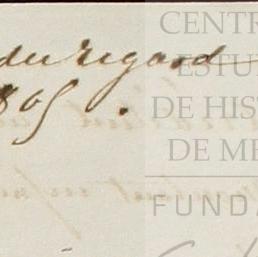 du regard
1865
CENTR
ESTU
DE HIST
DE ME
FUNDA